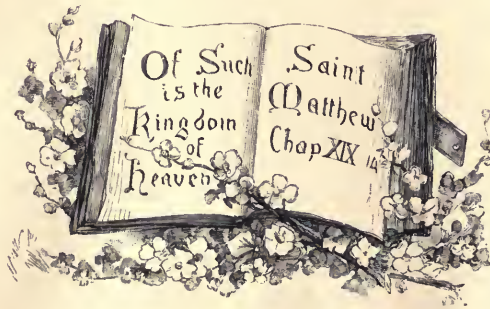 Of Such
is the
Kingdom
of
Heaven
Saint
Matthew
Chap XIX 14